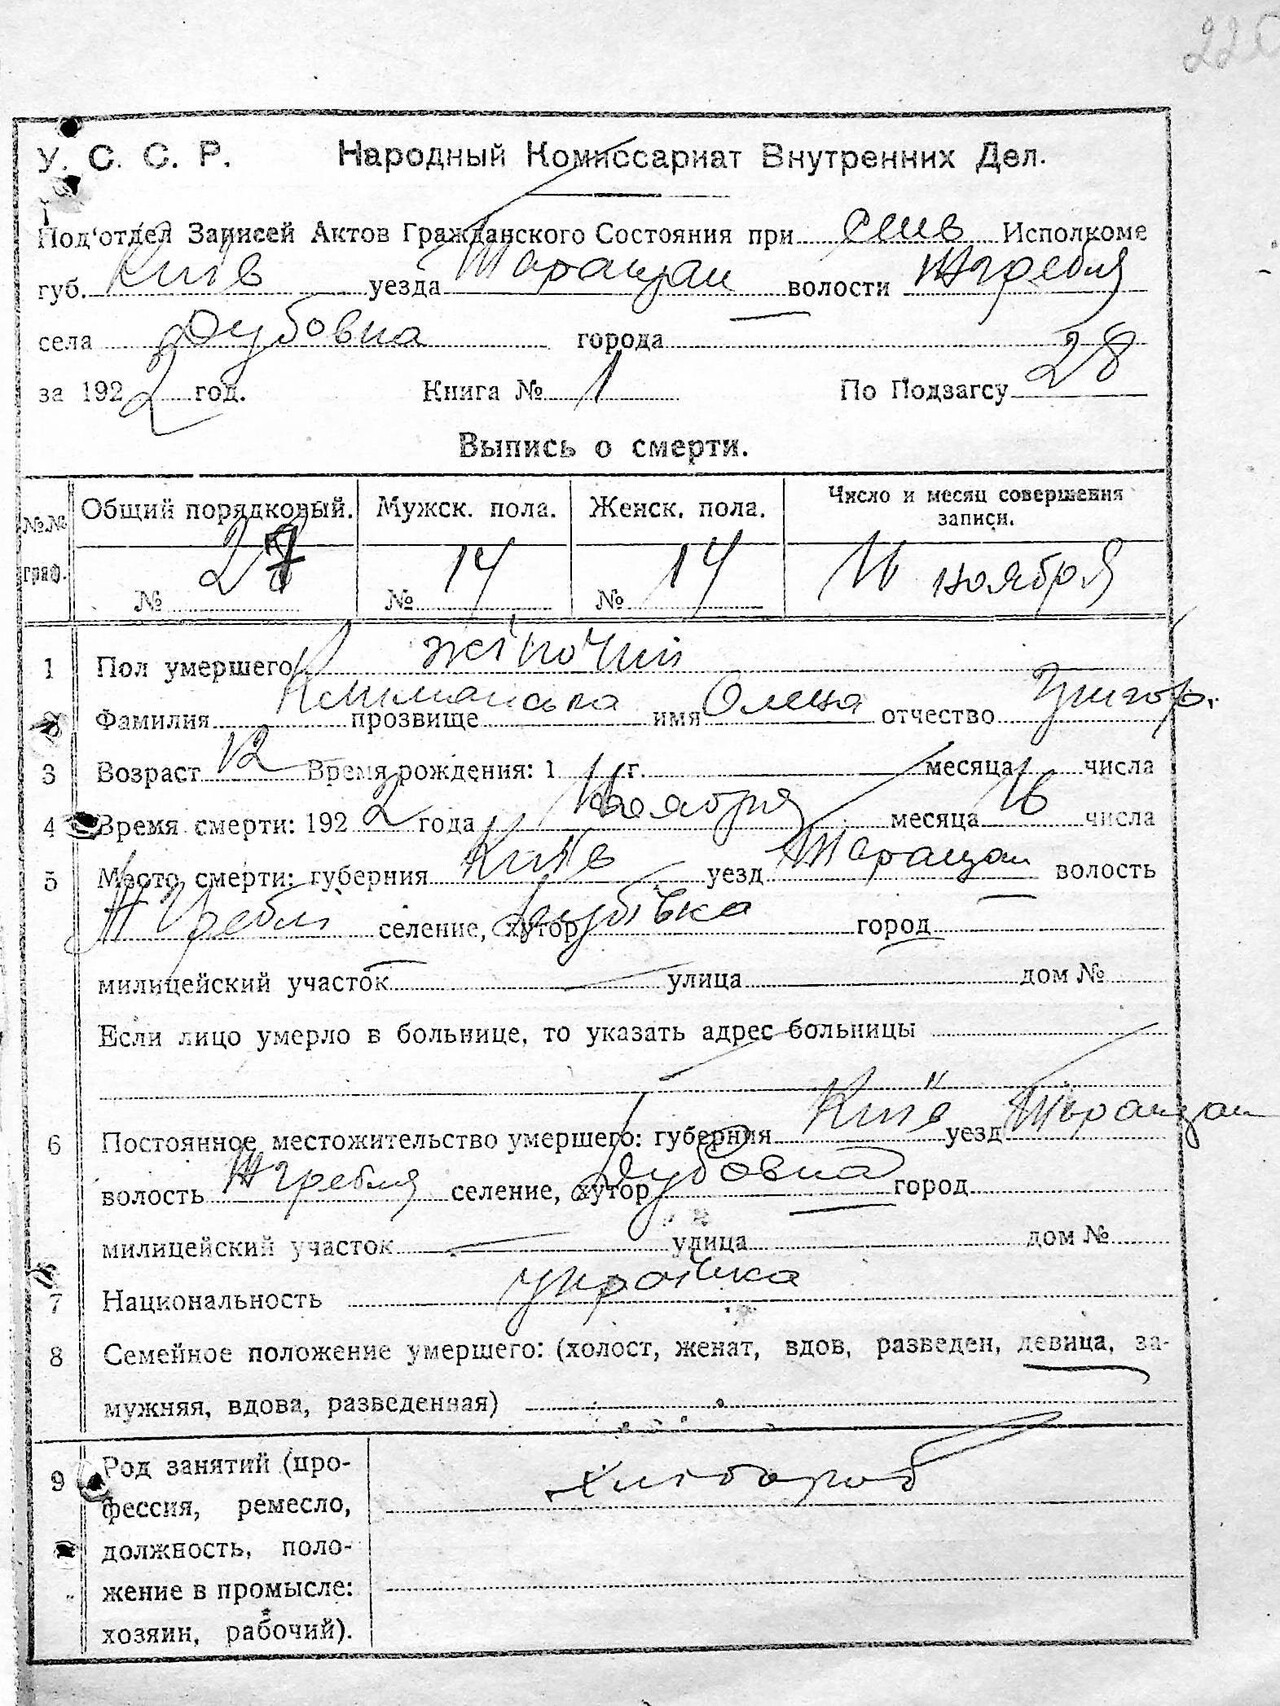 220
У. С. С. Р. Народный Комиссариат Внутренних Дел.
Под'отдел Записей Актов Гражданского Состояния при Исполкоме
губ. Київ уезда Таращан волости Жгребля
села Дубовка города
за 1922 год. Книга № 1 По Подзагсу 28
Выпись о смерти.
№№ граф. Общий порядковый. Мужск. пола. Женск. пола. Число и месяц совершения записи.
№ 27 № 14 № 14 16 ноября
1 Пол умершего жіночий
2 Фамилия Климанська прозвище имя Олена отчество Григор.
3 Возраст 12 Время рождения: 1 г. месяца числа
4 Время смерти: 1922 года Ноября месяца 16 числа
5 Место смерти: губерния Київ уезд Таращан волость
Жгребля селение, хутор Дубівка город
милицейский участок улица дом №
Если лицо умерло в больнице, то указать адрес больницы
6 Постоянное местожительство умершего: губерния Київ уезд Таращан
волость Жгребля селение, хутор Дубовка город
милицейский участок улица дом №
7 Национальность украінка
8 Семейное положение умершего: (холост, женат, вдов, разведен, девица, за-
мужняя, вдова, разведенная)
9 Род занятий (про- хлібороб
фессия, ремесло,
должность, поло-
жение в промысле:
хозяин, рабочий).